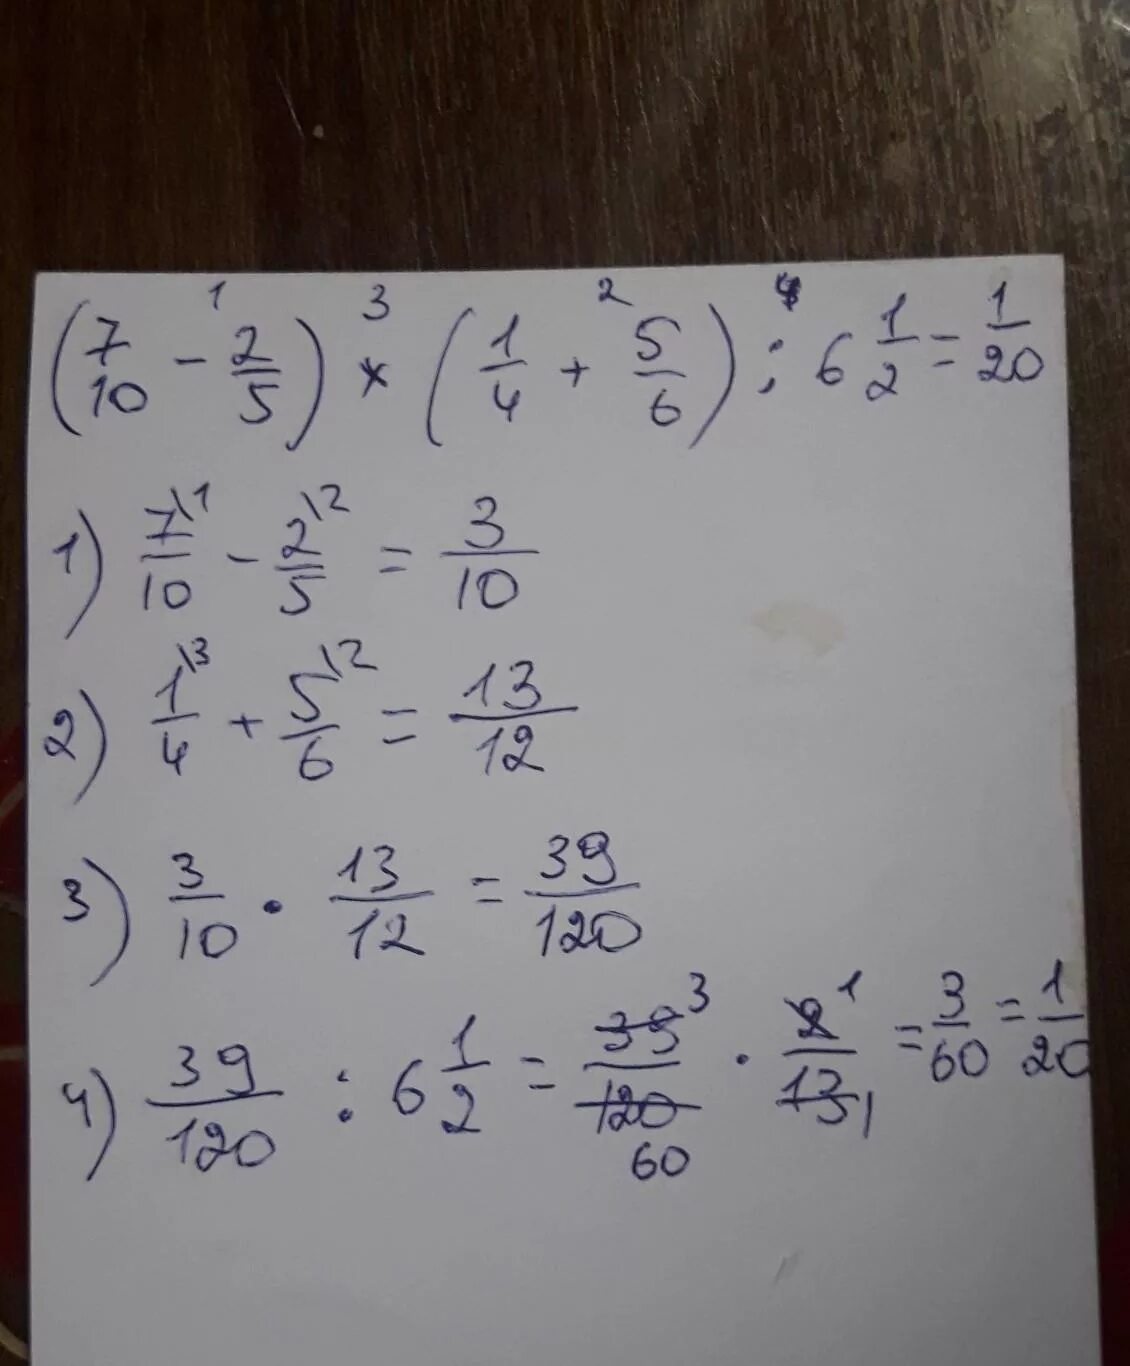 (7/10 - 2/5) * (1/4 + 5/6) : 6 1/2 = 1/20
1) 7\1/10 - 2\2/5 = 3/10
2) 1\3/4 + 5\2/6 = 13/12
3) 3/10 · 13/12 = 39/120
4) 39/120 : 6 1/2 = 39 3/120 60 · 2 1/13 1 = 3/60 = 1/20